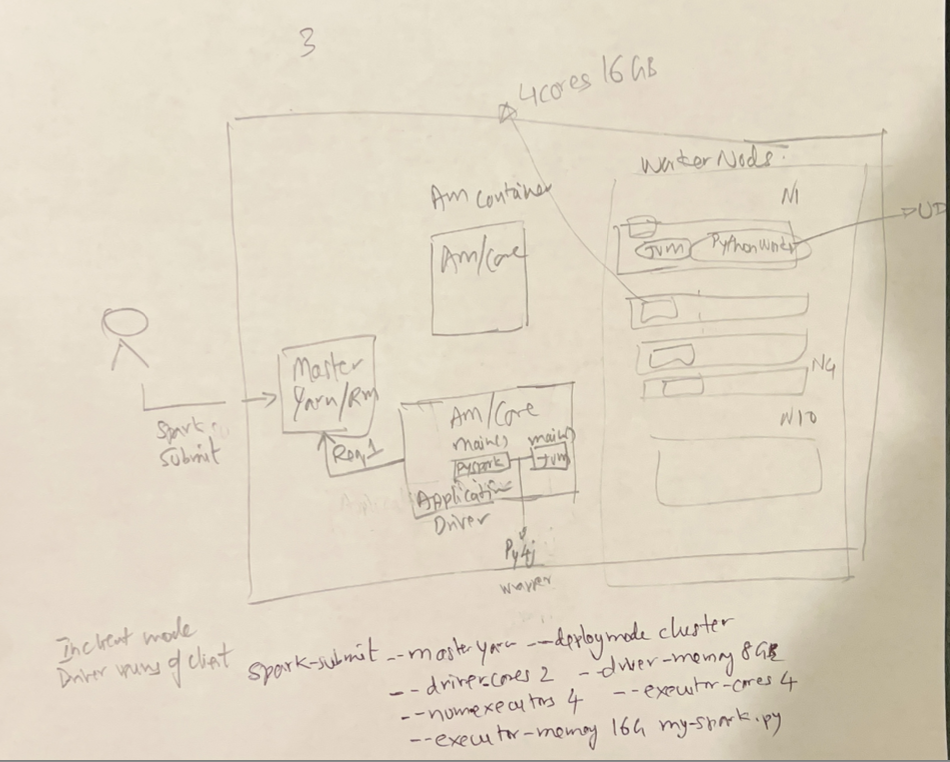 3
4 cores 16 GB
Worker Nods.
Am container
N1
Am/Core
Jvm
Python worker
UD
Master
Yarn/Rm
N4
Am/Core
main()
main()
Pyspark
Jvm
Req 1
Spark-
Submit
N10
Application
Driver
Py4j
wrapper
In client mode
Driver runs
client
spark-submit --master yarn --deploymode cluster
--driver-cores 2 --driver-memory 8GB
--numexecutors 4 --executor-cores 4
--executor-memory 16G my-spark.py